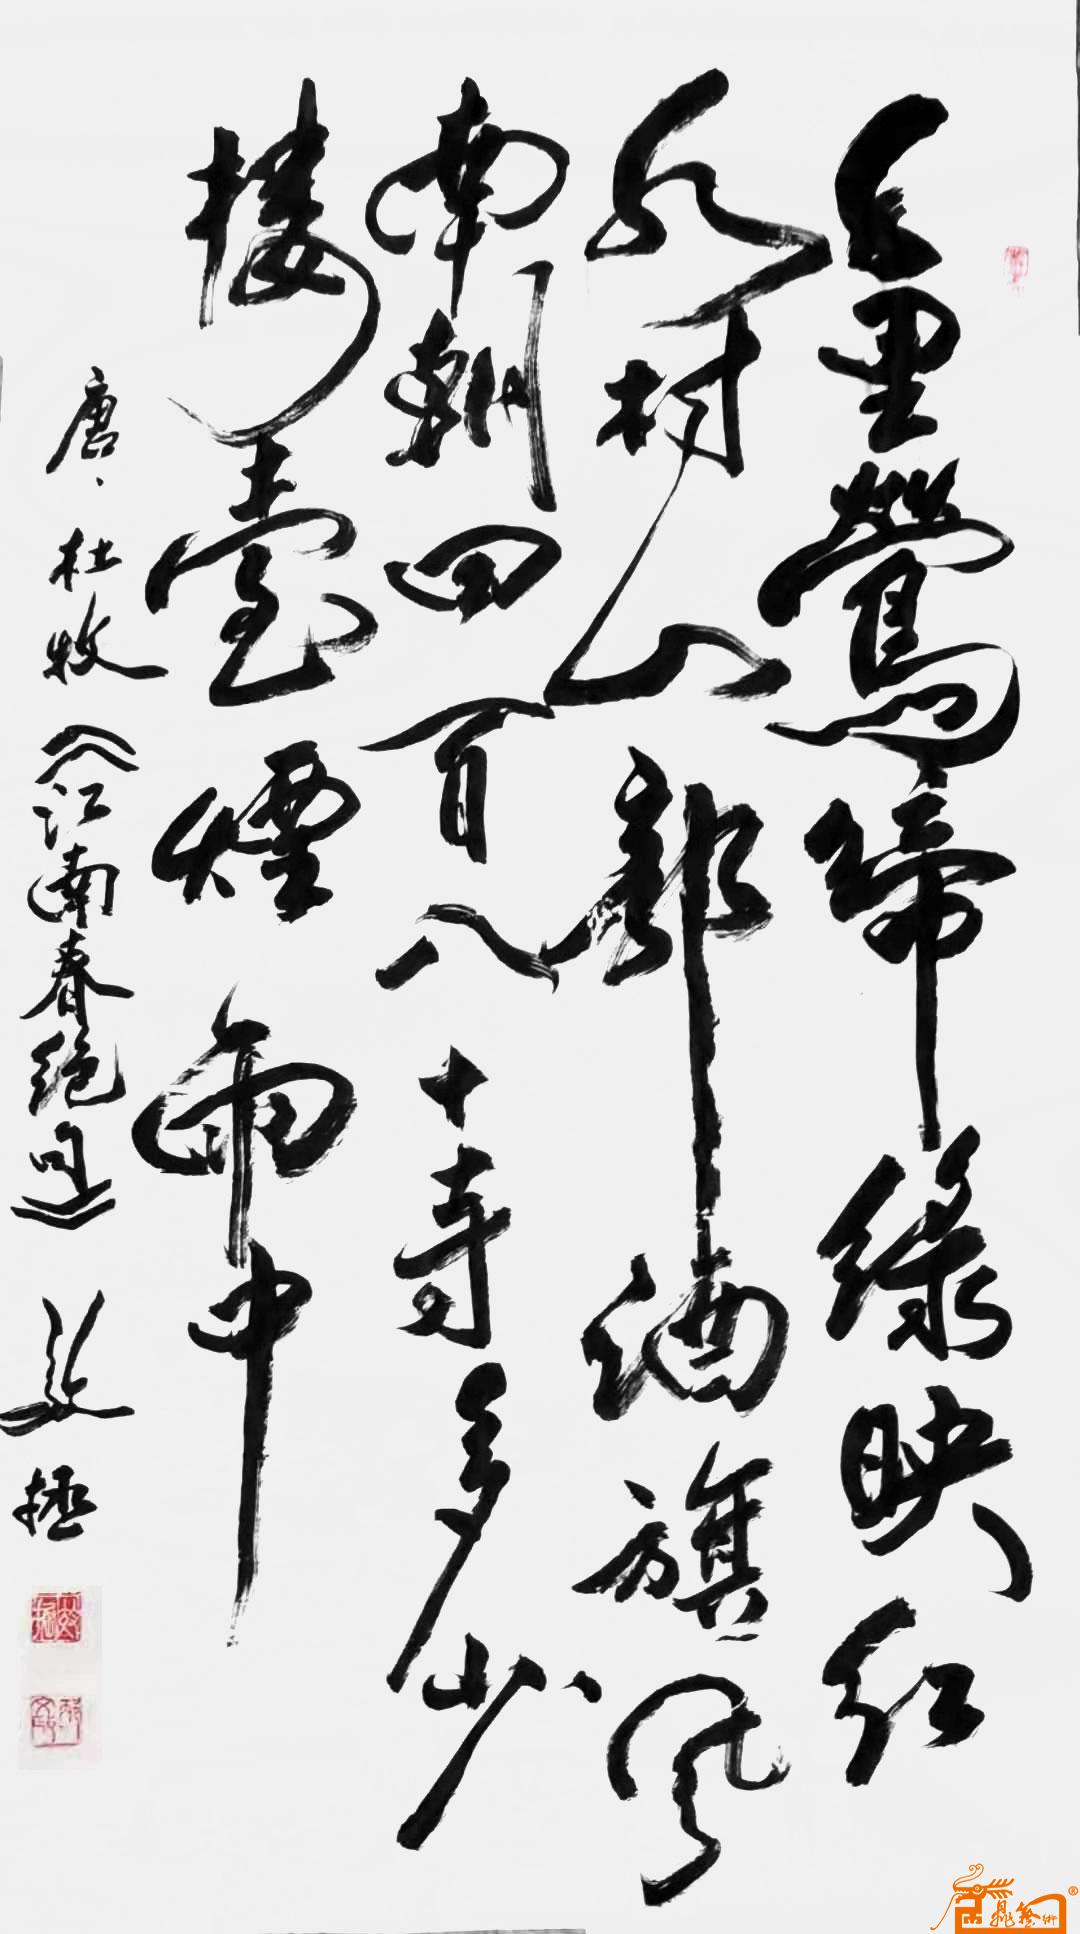 千里鶯啼綠映红
水村山郭酒旗风
南朝四百八十寺多少
樓臺煙雨中
唐、杜牧《江南春绝句》